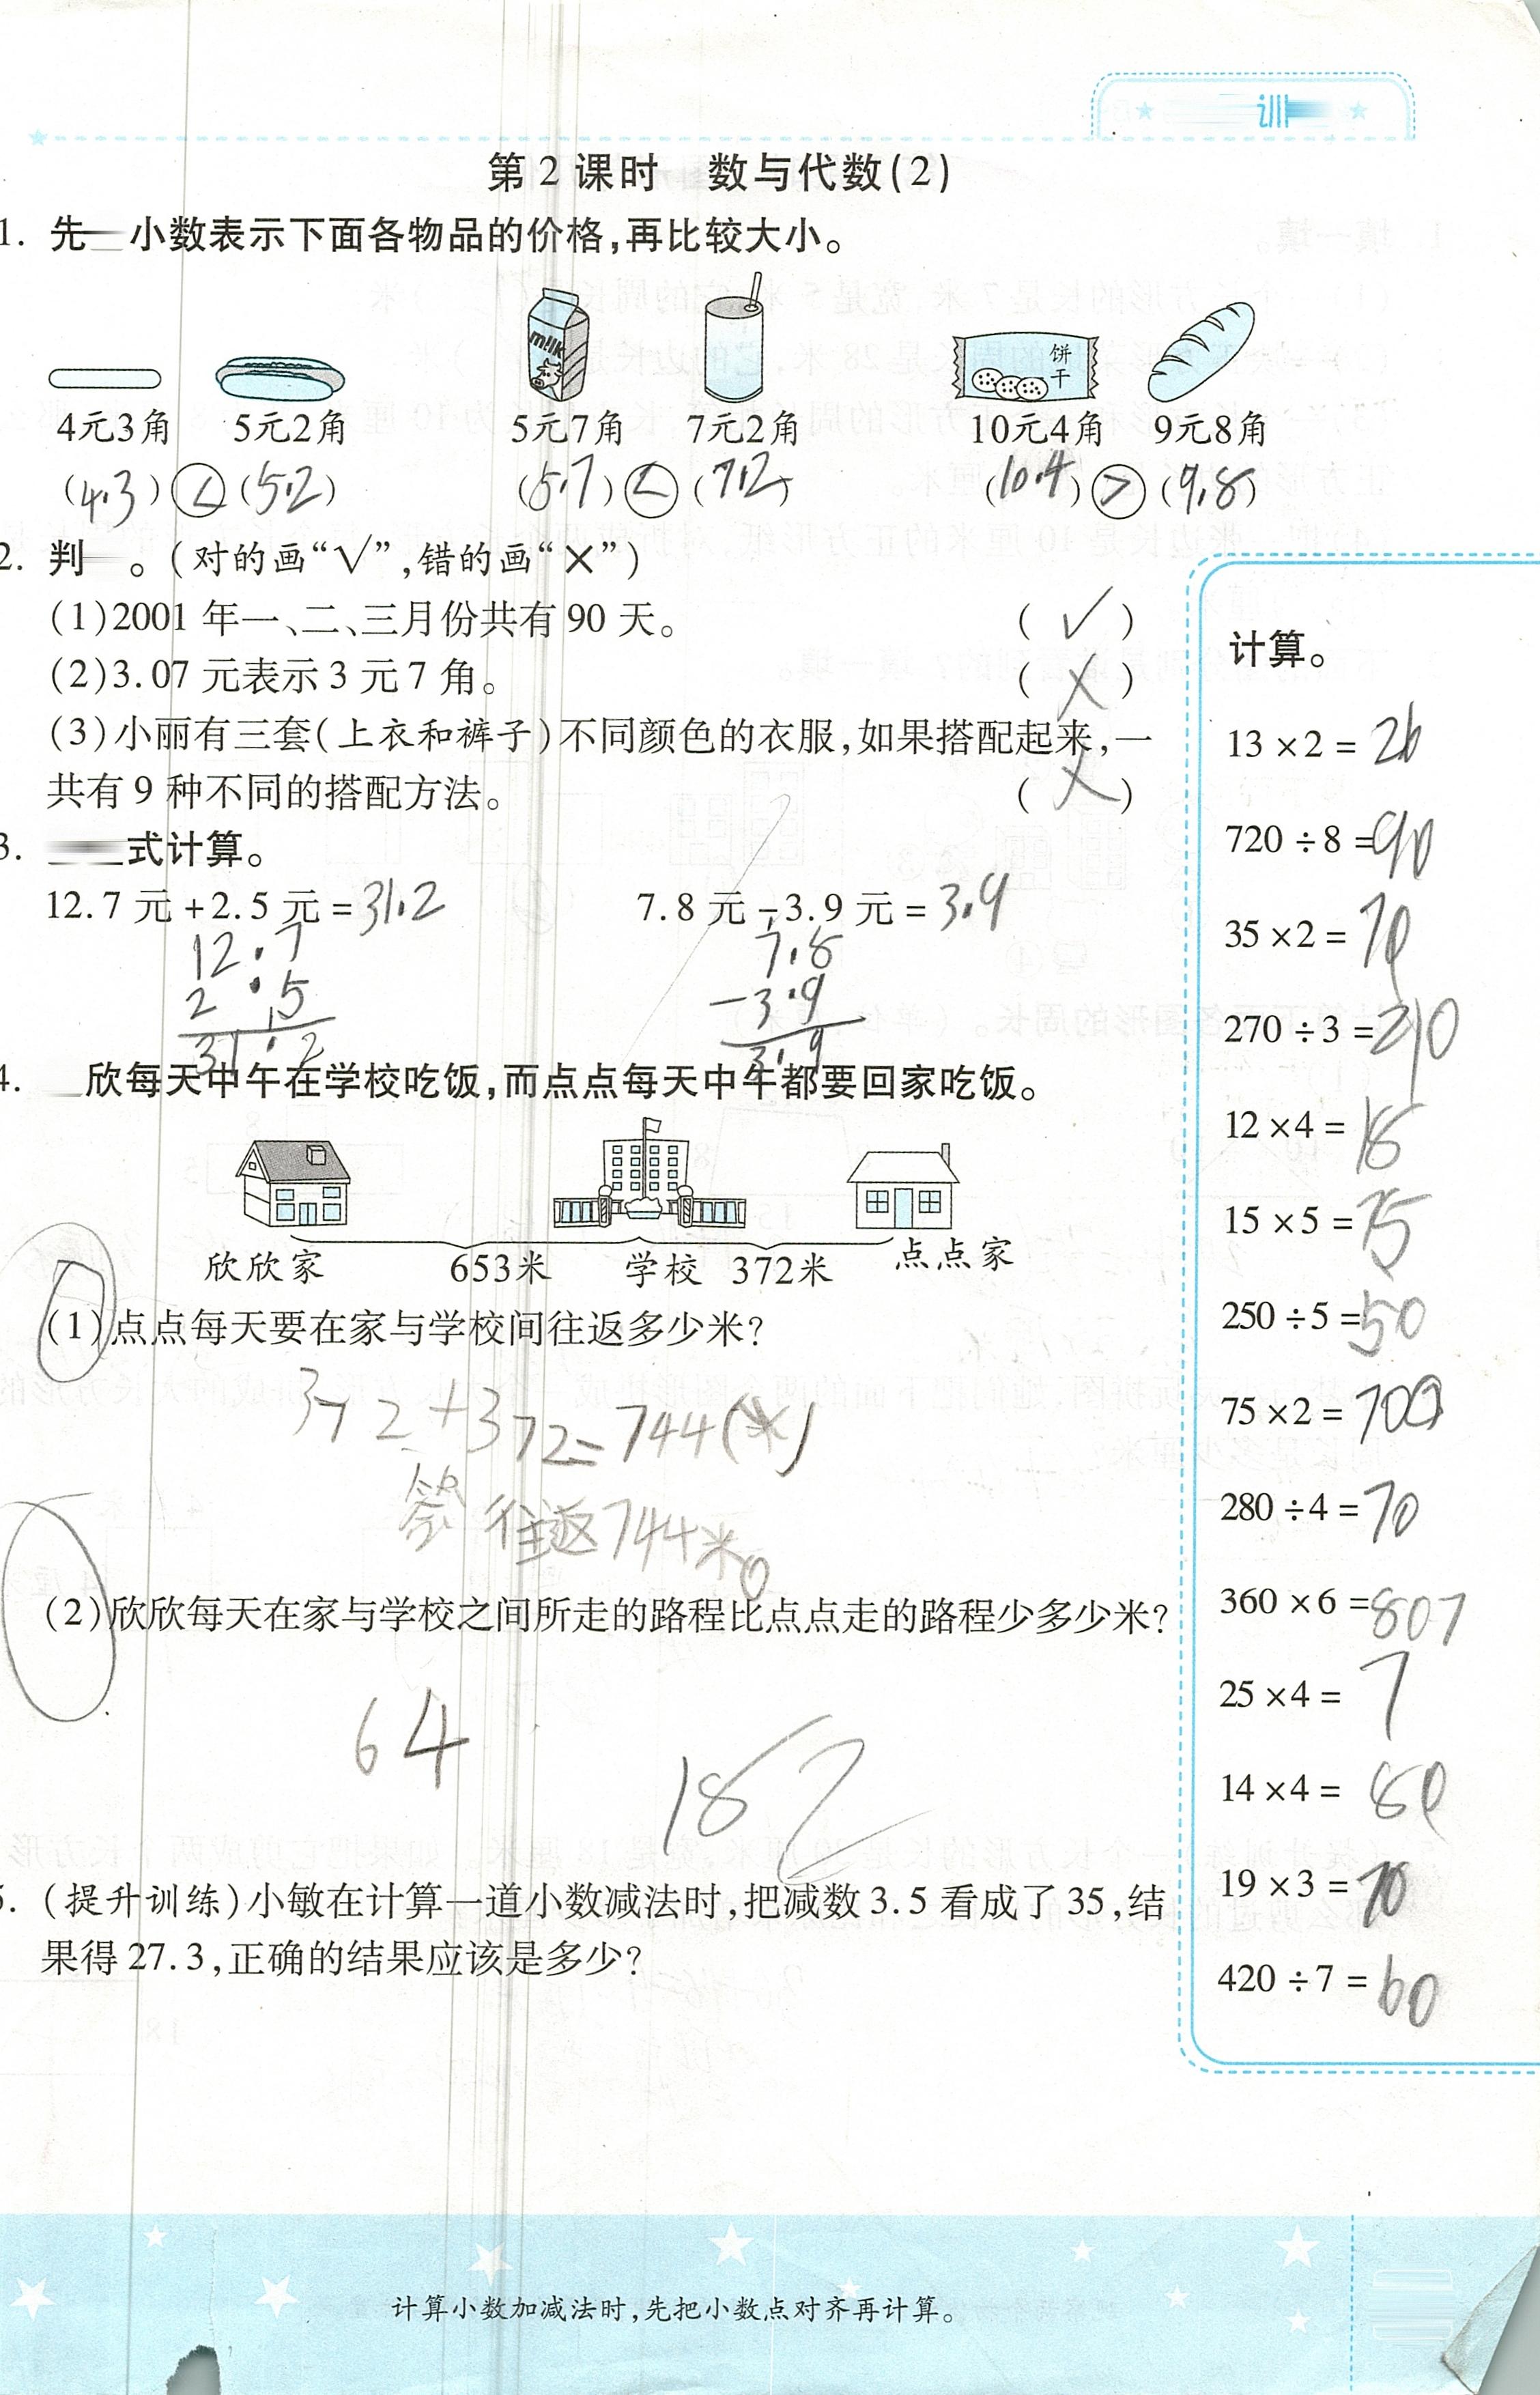 训
第2课时 数与代数(2)
1. 先 小数表示下面各物品的价格,再比较大小。
milk
饼干
4元3角 5元2角 5元7角 7元2角 10元4角 9元8角
(4.3)<(5.2) (5.7)<(7.2) (10.4)>(9.8)
2. 判 。(对的画“√”,错的画“×”)
(1)2001年一、二、三月份共有90天。 (√)
(2)3.07元表示3元7角。 (×)
(3)小丽有三套(上衣和裤子)不同颜色的衣服,如果搭配起来,一
共有9种不同的搭配方法。 (×)
3. 式计算。
12.7元+2.5元=31.2 7.8元-3.9元=3.9
12.7 7.8
2.5 -3.9
31.2 3.9
4. 欣每天中午在学校吃饭,而点点每天中午都要回家吃饭。
欣欣家 653米 学校 372米 点点家
(1)点点每天要在家与学校间往返多少米?
372+372=744(米)
答 往返744米。
(2)欣欣每天在家与学校之间所走的路程比点点走的路程少多少米?
64 182
5. (提升训练)小敏在计算一道小数减法时,把减数3.5看成了35,结
果得27.3,正确的结果应该是多少?
计算。
13×2=26
720÷8=90
35×2=70
270÷3=210
12×4=18
15×5=75
250÷5=50
75×2=700
280÷4=70
360×6=807
25×4=7
14×4=80
19×3=70
420÷7=60
计算小数加减法时,先把小数点对齐再计算。